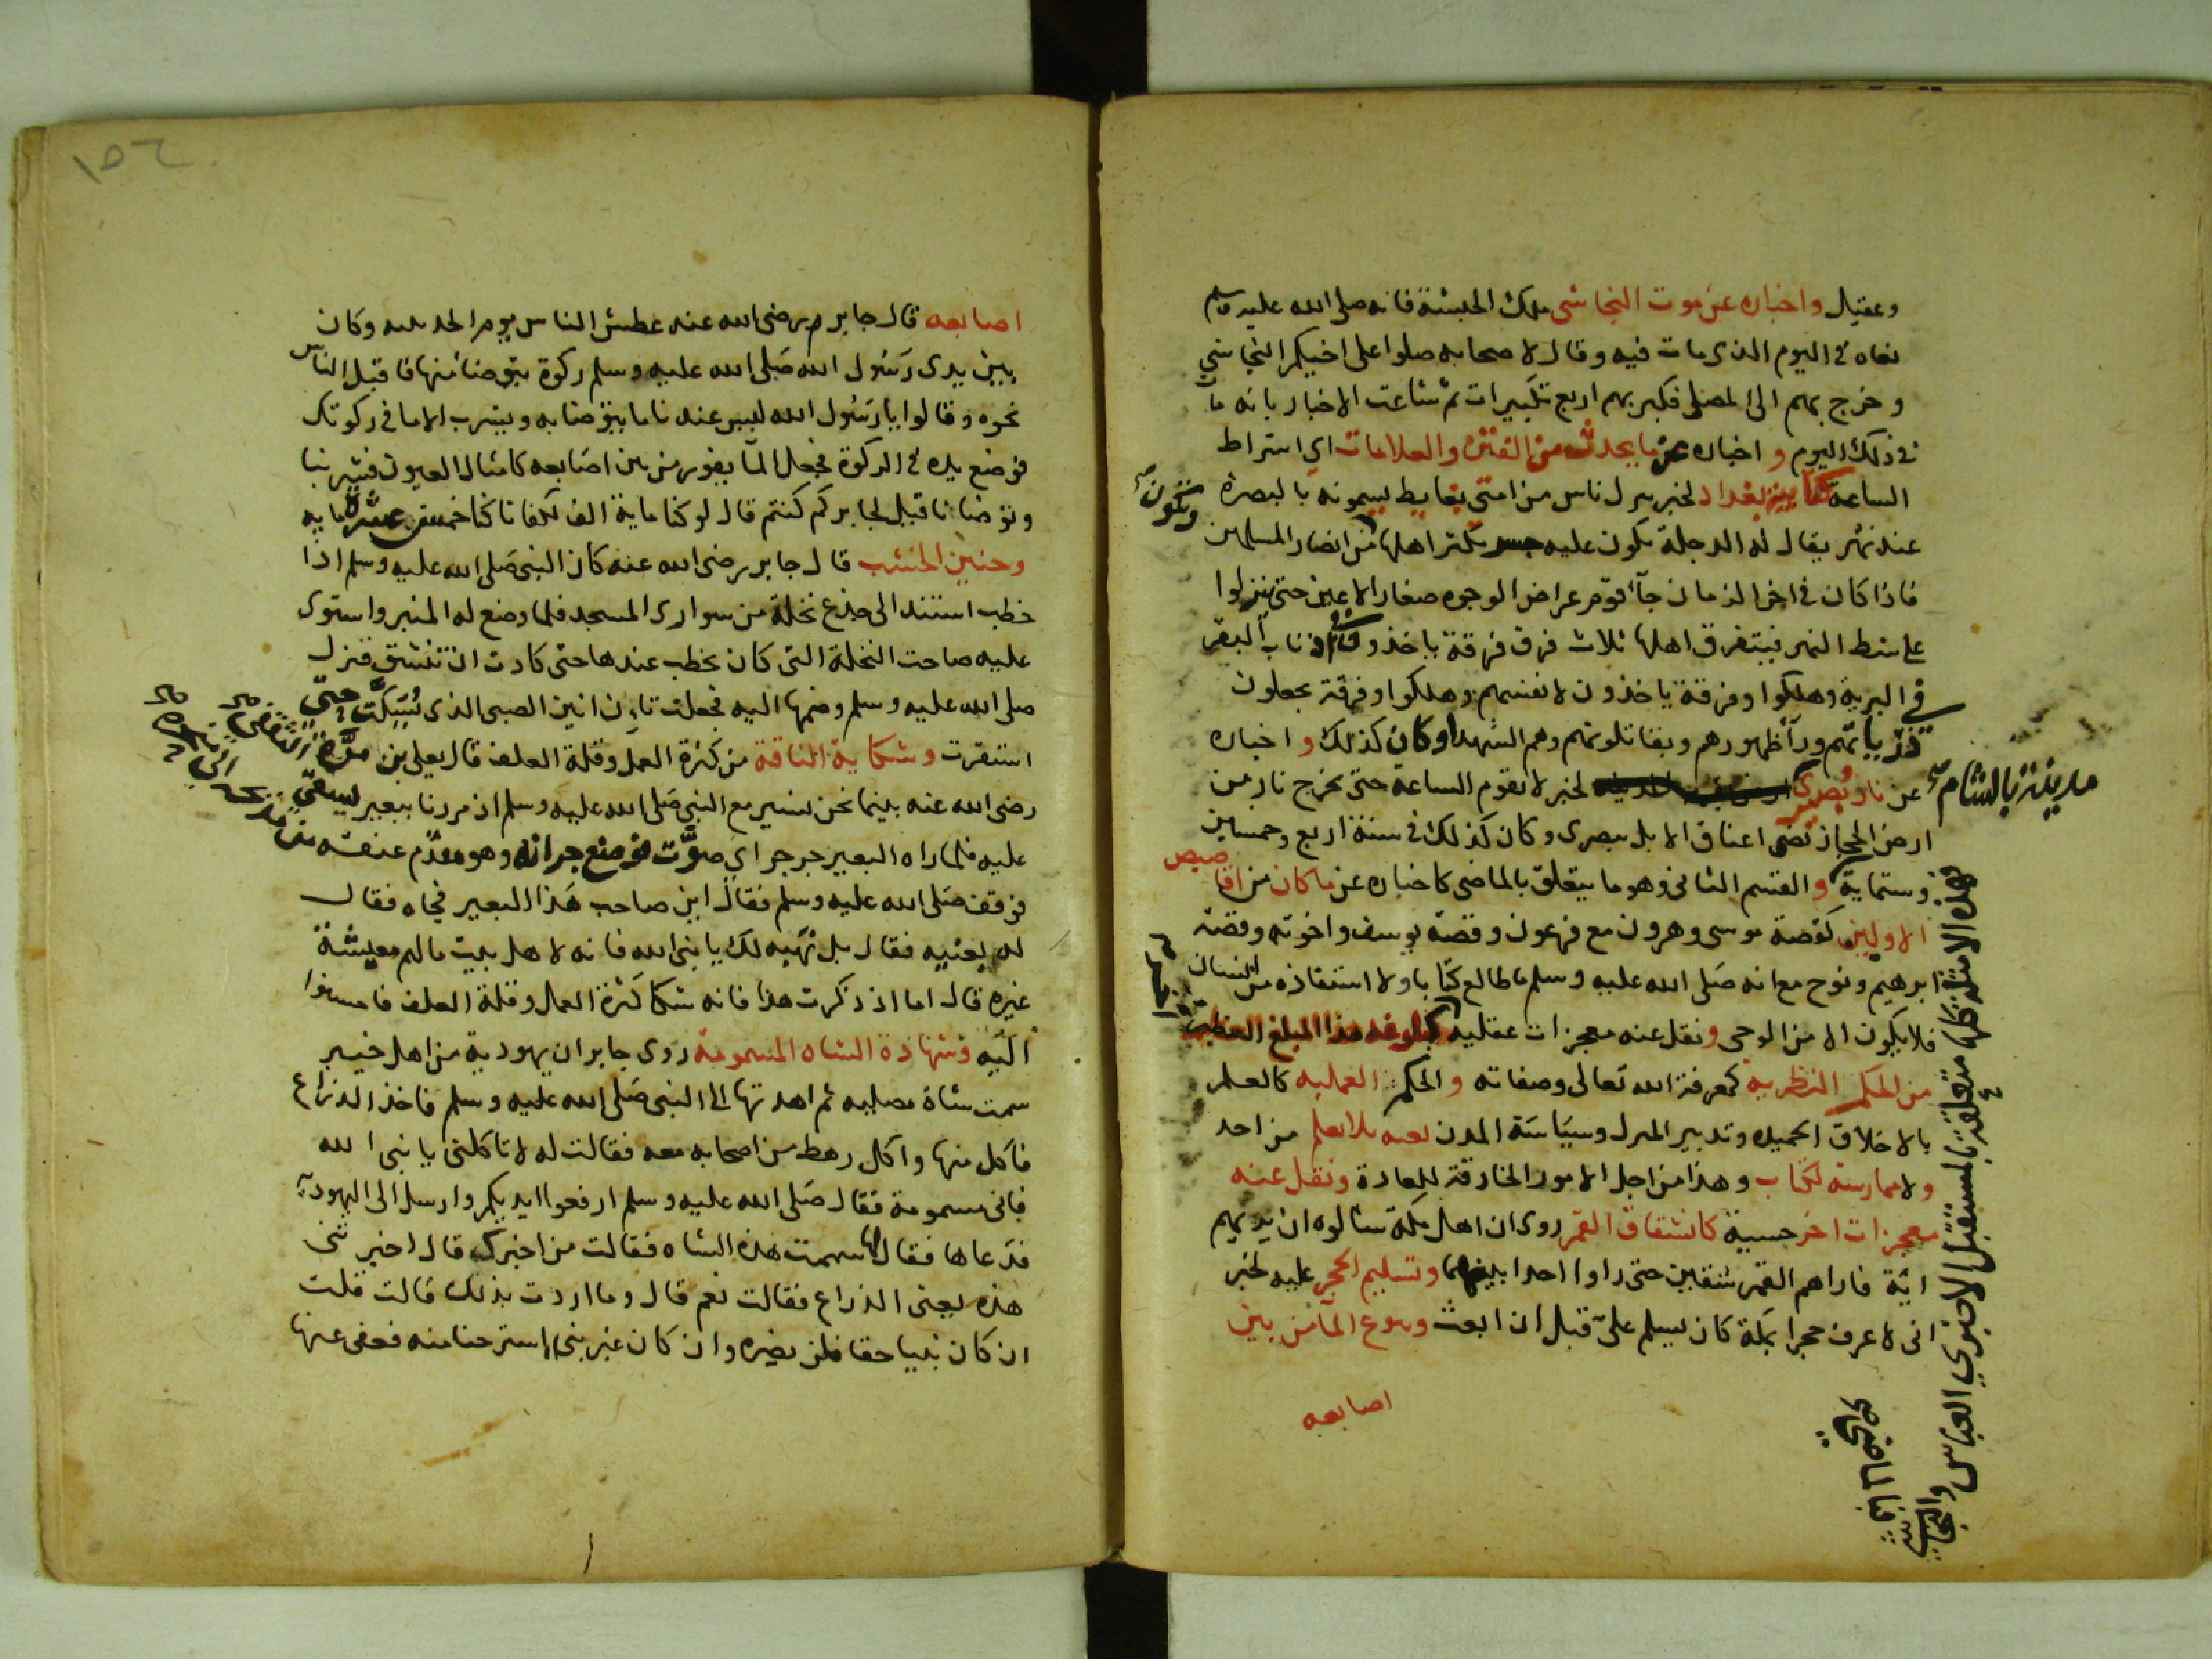 وعقيل واخباره عن موت النجاشى ملك الحبشة فانه صلى الله عليه وسلم
نعاه فى اليوم الذى مات فيه وقال لاصحابه صلوا على اخيكم النجاشي
وخرج بهم الى المصلى فكبر بهم اربع تكبيرات ثم شاعت الاخبار بانه مات
فى ذلك اليوم واخباره عن ما يحدث من الفتن والعلامات اى اشراط
الساعة بغداد لخبر ينزل ناس من امتى بغايط يسمونه بالبصرة
عند نهر يقال له الدجلة يكون عليه جسر يكثر اهلها وتكون من امصار المسلمين
فاذا كان فى اخر الزمان جآ قوم عراض الوجوه صغار الاعين حتى ينزلوا
على شط النهر فيتفرق اهلها ثلاث فرق فرقة ياخذون اذناب البقر
فى البرية وهلكوا وفرقة ياخذون لانفسهم وهلكوا وفرقة يجعلون
ذرياتهم ورآ ظهورهم ويقاتلونهم وهم الشهدا وكان كذلك واخباره
عن نار بصرى مدينة بالشام لخبر لا تقوم الساعة حتى تخرج نار من
ارض الحجاز تضى اعناق الابل ببصرى وكان كذلك فى سنة اربع وخمسين
وستماية والقسم الثانى وهو ما يتعلق بالماضى كاخباره عن ما كان من اقاصيص
الاولين كقصة موسى وهرون مع فرعون وقصة يوسف واخوته وقصة
ابرهيم ونوح مع انه صلى الله عليه وسلم ما طالع كتابا ولا استفاده من انسان
فلا يكون الا من الوحى ونقل عنه معجزات عقلية كبلوغه هذا المبلغ العظيم
من الحكم النظرية كمعرفة الله تعالى وصفاته والحكم العملية كالعلم
بالاخلاق الحميدة وتدبير المنزل وسياسة المدن بلا تعلم من احد
ولا ممارسة لكتاب وهذا من اجل الامور الخارقة للعادة ونقل عنه
معجزات اخر حسية كانشقاق القمر روى ان اهل مكة سالوه ان يريهم
اية فاراهم القمر شقين حتى راوا احدا بينهما وتسليم الحجر عليه لخبر
انى لاعرف حجرا بمكة كان يسلم علىّ قبل ان ابعث ونبوع المآ من بين
اصابعه
هذه الامثلة كلها متعلقة بالمستقبل الا خبري العباس والنجاشي
١٥٢
اصابعه قال جابر رضى الله عنه عطش الناس يوم الحديبيه وكان
بين يدى رسول الله صلى الله عليه وسلم ركوة يتوضا منها فاقبل الناس
نحوه وقالوا يا رسول الله ليس عندنا ما يتوضا به ويشرب الا ما فى ركوتك
فوضع يده فى الركوة فجعل المآ يفور من بين اصابعه كامثال العيون فشربنا
وتوضانا قيل لجابر كم كنتم قال لو كنا ماية الف لكفانا كنا خمس عشرة ماية
وحنين الخشب قال جابر رضى الله عنه كان النبى صلى الله عليه وسلم اذا
خطب استند الى جذع نخلة من سوارى المسجد فلما وضع له المنبر واستوى
عليه صاحت النخلة التى كان يخطب عندها حتى كادت ان تنشق فنزل
صلى الله عليه وسلم وضمها اليه فجعلت تان انين الصبى الذى يسكت حتى
استقرت وشكاية الناقة من كثرة العمل وقلة العلف قال يعلى بن مرة الثقفي
رضى الله عنه بينما نحن نسير مع النبى صلى الله عليه وسلم اذ مررنا ببعير يسقى
عليه فلما راه البعير جرجر اى صوّت فوضع جرانه وهو مقدم عنقه من
فوقف صلى الله عليه وسلم فقال اين صاحب هذا البعير فجاه فقال
له بعنيه فقال بل نهبه لك يا نبى الله فانه لاهل بيت مالهم معيشة
غيره قال اما اذ ذكرت هذا فانه شكا كثرة العمل وقلة العلف فاحسنوا
اليه وشهادة الشاه المسمومة روى جابر ان يهودية من اهل خيبر
سمت شاة مصليه ثم اهدتها الى النبى صلى الله عليه وسلم فاخذ الذراع
فاكل منها واكل رهط من اصحابه معه فقالت له لا تاكلنى يا نبى الله
فانى مسمومة فقال صلى الله عليه وسلم ارفعوا ايديكم وارسل الى اليهودية
فدعاها فقال لها سممت هذه الشاه فقالت من اخبرك قال اخبرتنى
هذه يعنى الذراع فقالت نعم قال وما اردت بذلك قالت قلت
ان كان نبيا حقا فلن يضره وان كان غير نبى استرحنا منه فعفى عنها